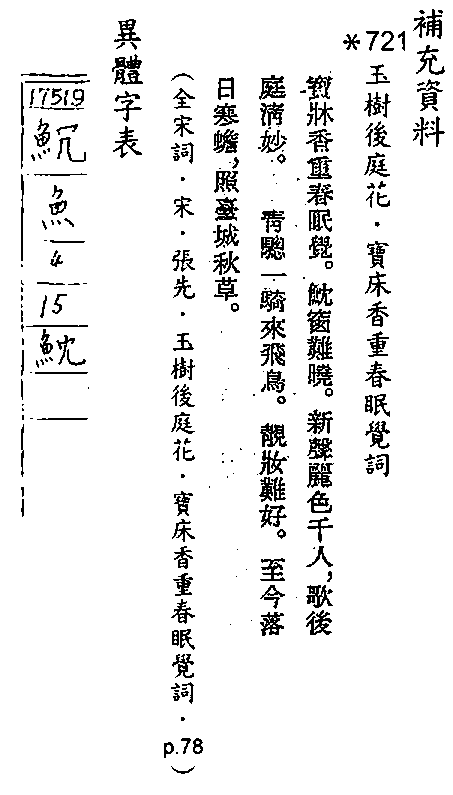 補充資料
*721 玉樹後庭花．寶床香重春眠覺詞
寶牀香重春眠覺。魫窗難曉。新聲麗色千人，歌後
庭清妙。 青驄一騎來飛鳥。靚妝難好。至今落
日寒蟾，照臺城秋草。
（全宋詞．宋．張先．玉樹後庭花．寶床香重春眠覺詞．p.78）
異體字表
17519
魚
4
15
魫